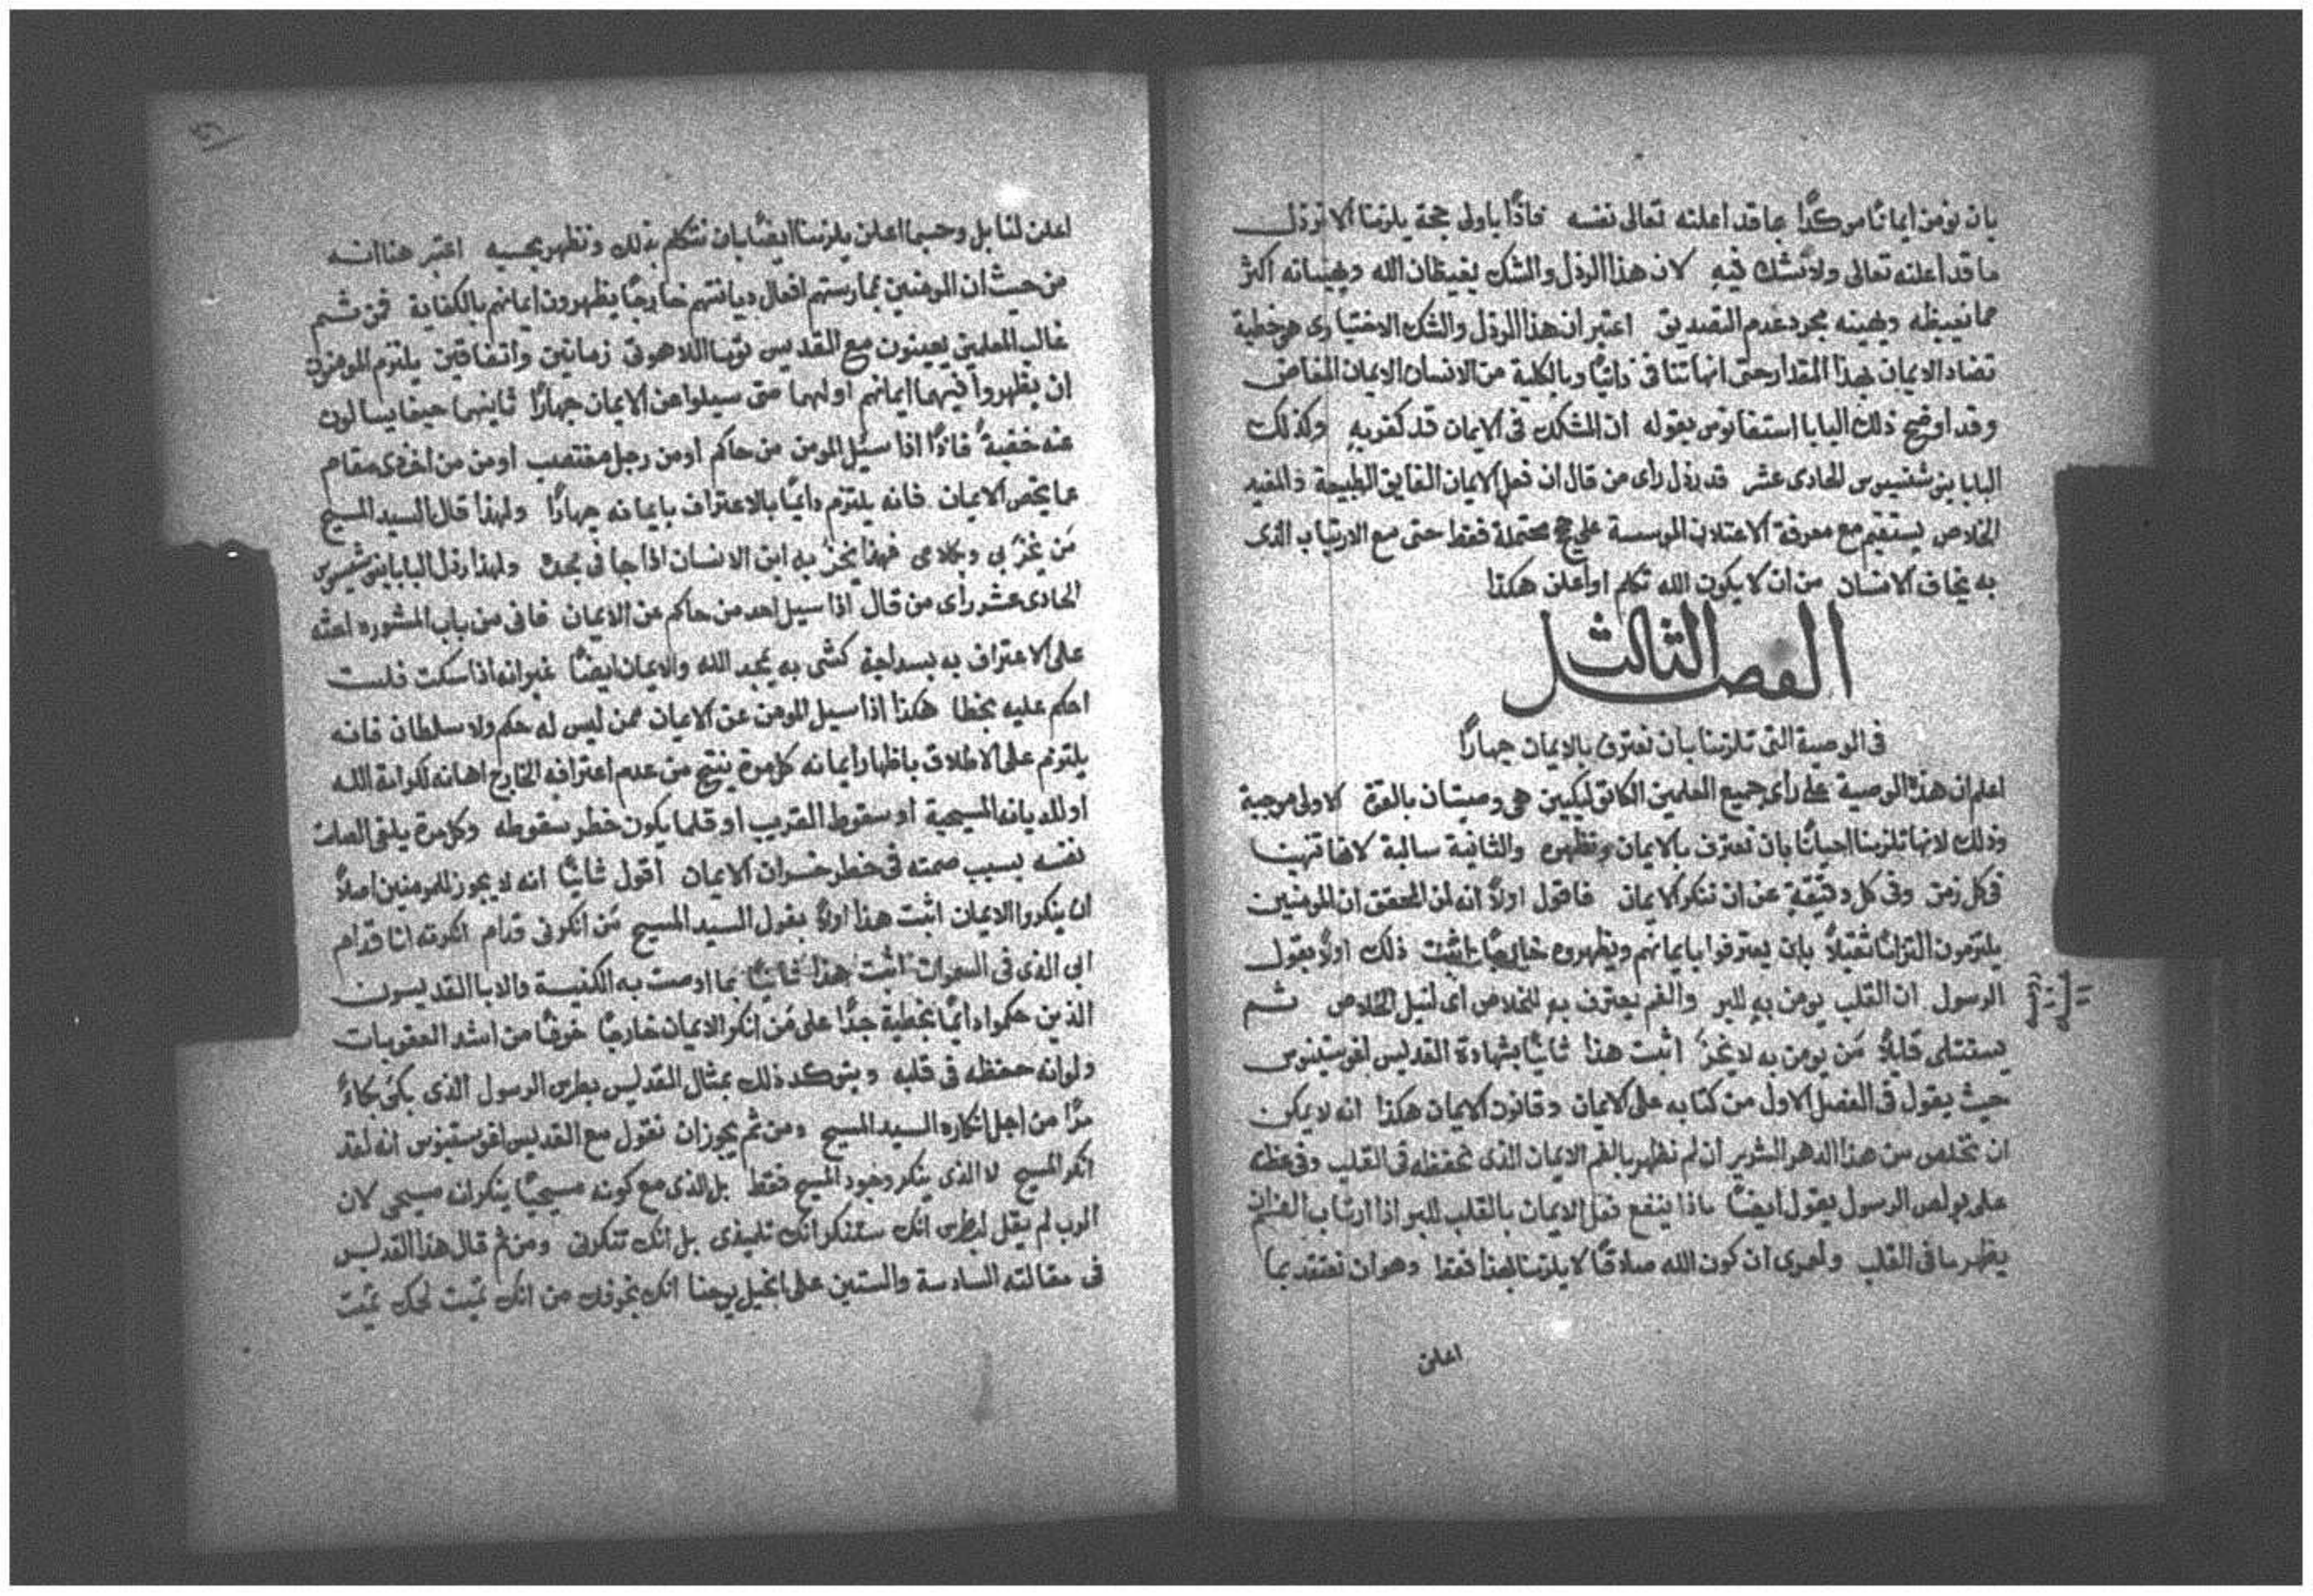 بان نومن ايمانًا موكدًا بما قد اعلنه تعالى نفسه فاذًا باولى حجة يلزمنا الا نرذل
ما قد اعلنه تعالى ولا نشك فيه لان هذا الرذل والشك يغيظان الله ويهينانه اكثر
مما يغيظه ويهينه مجرد عدم التصديق اعتبر ان هذا الرذل والشك الاختيارى هو خطية
تضاد الايمان بهذا المقدار حتى انها تنافى ذاتيًا وبالكلية من الانسان الايمان المفاض
وقد اوضح ذلك البابا استفانوس بقوله ان المشكك فى الايمان قد كفر به وكذلك
البابا ينوشنسيوس الحادى عشر قد رذل راى من قال ان فعل الايمان الفايق الطبيعة والمفيد
الخلاص يستقيم مع معرفة الاعتلان الموسسة على حجج محتملة فقط حتى مع الارتياب الذى
به يخاف الانسان من ان لا يكون الله تكلم او اعلن هكذا
الفصل الثالث
فى الوصية التى تلزمنا بان نعترف بالايمان جهارًا
اعلم ان هذه الوصية على راى جميع المعلمين الكاثوليكيين هى وصيتان بالقوة الاولى موجبة
وذلك لانها تلزمنا احيانًا بان نعترف بالايمان ونظهره والثانية سالبة لانها تنهينا
فى كل زمن وفى كل دقيقة عن ان ننكر الايمان فاقول اولاً انه لمن المحقق ان المومنين
يلتزمون التزامًا ثقيلاً بان يعترفوا بايمانهم ويظهروه خارجًا اثبت ذلك اولاً بقول
الرسول ان القلب يومن به للبر والفم يعترف به للخلاص اى لنيل الخلاص ثم
يستتلى قايلاً مَن يومن به لا يخزَ اثبت هذا ثانيًا بشهادة القديس اغوستينوس
حيث يقول فى الفصل الاول من كتابه على الايمان وقانون الايمان هكذا انه لا يمكن
ان نخلص من هذا الدهر الشرير ان لم نظهر بالفم الايمان الذى نحفظه فى القلب وفى عظته
على بولص الرسول يقول ايضًا ماذا ينفع فعل الايمان بالقلب للبر اذا ارتاب الفم ان
يظهر ما فى القلب واحرى ان كون الله صادقًا لا يلزمنا بهذا فقط وهو ان نعتقد بما
اعلن
اعلن لنا بل وحسبما اعلن يلزمنا ايضًا بان نتكلم بذلك ونظهر بحسبه اعتبر هنا انه
من حيث ان المومنين بممارستهم افعال ديانتهم خارجًا يظهرون ايمانهم بالكفاية فمن ثم
غالب المعلمين يعينون مع القديس توما اللاهوتى زمانين واتفاقين يلتزم المومنون
ان يظهروا فيهما ايمانهم اولهما متى سيلوا عن الايمان جهارًا ثانيهما حينما يسالون
عنه خفيةً فاذًا اذا سيُل المومن من حاكم او من رجل مغتصب او من من اخذ مقامهم
عما يخص الايمان فانه يلتزم دايمًا بالاعتراف بايمانه جهارًا ولهذا قال السيد المسيح
مَن يخزَ بى وبكلامى فهذا يخزَ به ابن الانسان اذا جا فى مجده ولهذا رذل البابا ينوشنسيوس
الحادى عشر راى من قال اذا سيل احد من حاكم عن الايمان فانى من باب المشوره احثه
على الاعتراف به بسداجة كشى به يمجد الله والايمان ايضًا غير انه اذا سكت فلست
احكم عليه بخطا هكذا اذا سيل المومن عن الايمان ممن ليس له حكم ولا سلطان فانه
يلتزم على الاطلاق باظهار ايمانه كل مرة ينتج من عدم اعترافه الخارج اهانه لكرامة الله
او للديانه المسيحية او سقوط القريب او قلما يكون خطر سقوطه وكل مرة يلقى الصامت
نفسه بسبب صمته فى خطر خسران الايمان اقول ثانيًا انه لا يجوز للمومنين اصلاً
ان ينكروا الايمان اثبت هذا اولاً بقول السيد المسيح مَن انكرنى قدام انكرته انا قدام
ابى الذى فى السموات اثبت هذا ثانيًا بما اوصت به الكنيسة والابا القديسون
الذين حكموا دايمًا بخطية جدًا على مَن انكر الايمان خارجًا خوفًا من اشد العقوبات
ولو انه حفظه فى قلبه ويتوكد ذلك بمثال القديس بطرس الرسول الذى بكى بكاءً
مرًّا من اجل انكاره السيد المسيح ومن ثم يجوز ان نقول مع القديس اغوستينوس انه لقد
انكر المسيح لا الذى ينكر وجود المسيح فقط بل الذى مع كونه مسيحيًا ينكر انه مسيحى لان
الرب لم يقل لبطرس انك ستنكر انك تلميذى بل انك تنكرنى ومن ثم قال هذا القديس
فى مقالته السادسة والستين على انجيل يوحنا انك بخوفك من انك تميت لحمك تميت